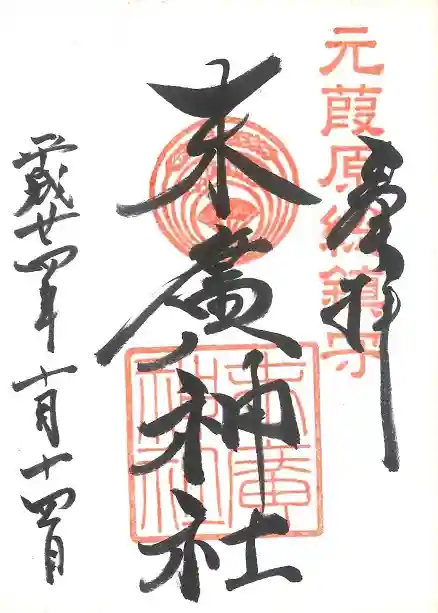 元葭原總鎮守
奉拝
末廣神社
末廣神社
平成廿四年十月十四日